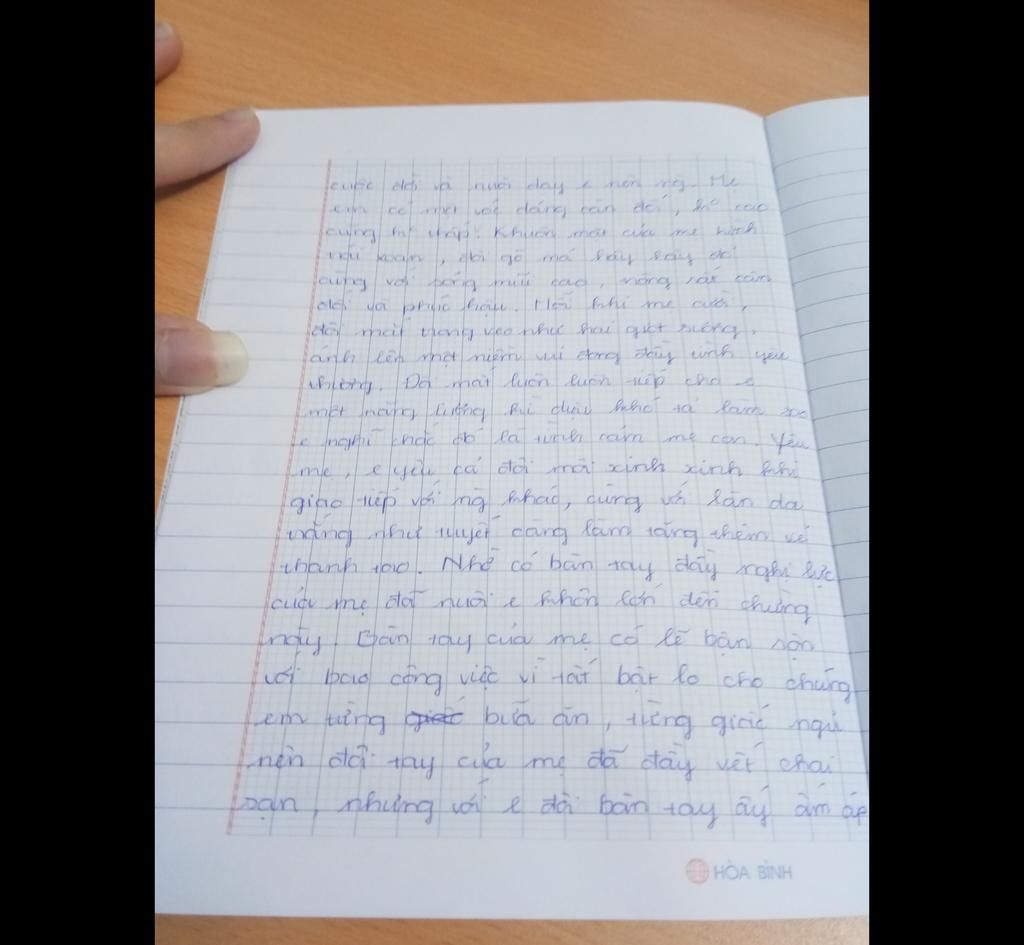 cuộc đời và nuôi dạy e nên ng. Mẹ
em có một vóc dáng cân đối, k cao
cũng k thấp. Khuôn mặt của mẹ hình
trái xoan, đôi gò má hây hây đỏ
cùng với sống mũi cao, trông rất cân
đối và phúc hậu. Mỗi khi mẹ cười,
đôi mắt trong veo như hai giọt sương,
ánh lên một niềm vui đong đầy tình yêu
thương. Đôi mắt luôn luôn tiếp cho e
một năng lượng kì diệu khó tả lắm
e nghĩ chắc đó là tình cảm mẹ con. Yêu
mẹ, e yêu cả đôi môi xinh xinh khi
giao tiếp với ng khác, cùng với làn da
trắng như tuyết càng làm tăng thêm vẻ
thanh tao. Nhờ có bàn tay đầy nghị lực
của mẹ đã nuôi e khôn lớn đến chừng
này. Bàn tay của mẹ có lẽ bận rộn
với bao công việc vì tất bật lo cho chúng
em từng bữa ăn, từng giấc ngủ
nên đôi tay của mẹ đã đầy vết chai
sạn, nhưng với e đôi bàn tay ấy ấm áp
HÒA BÌNH